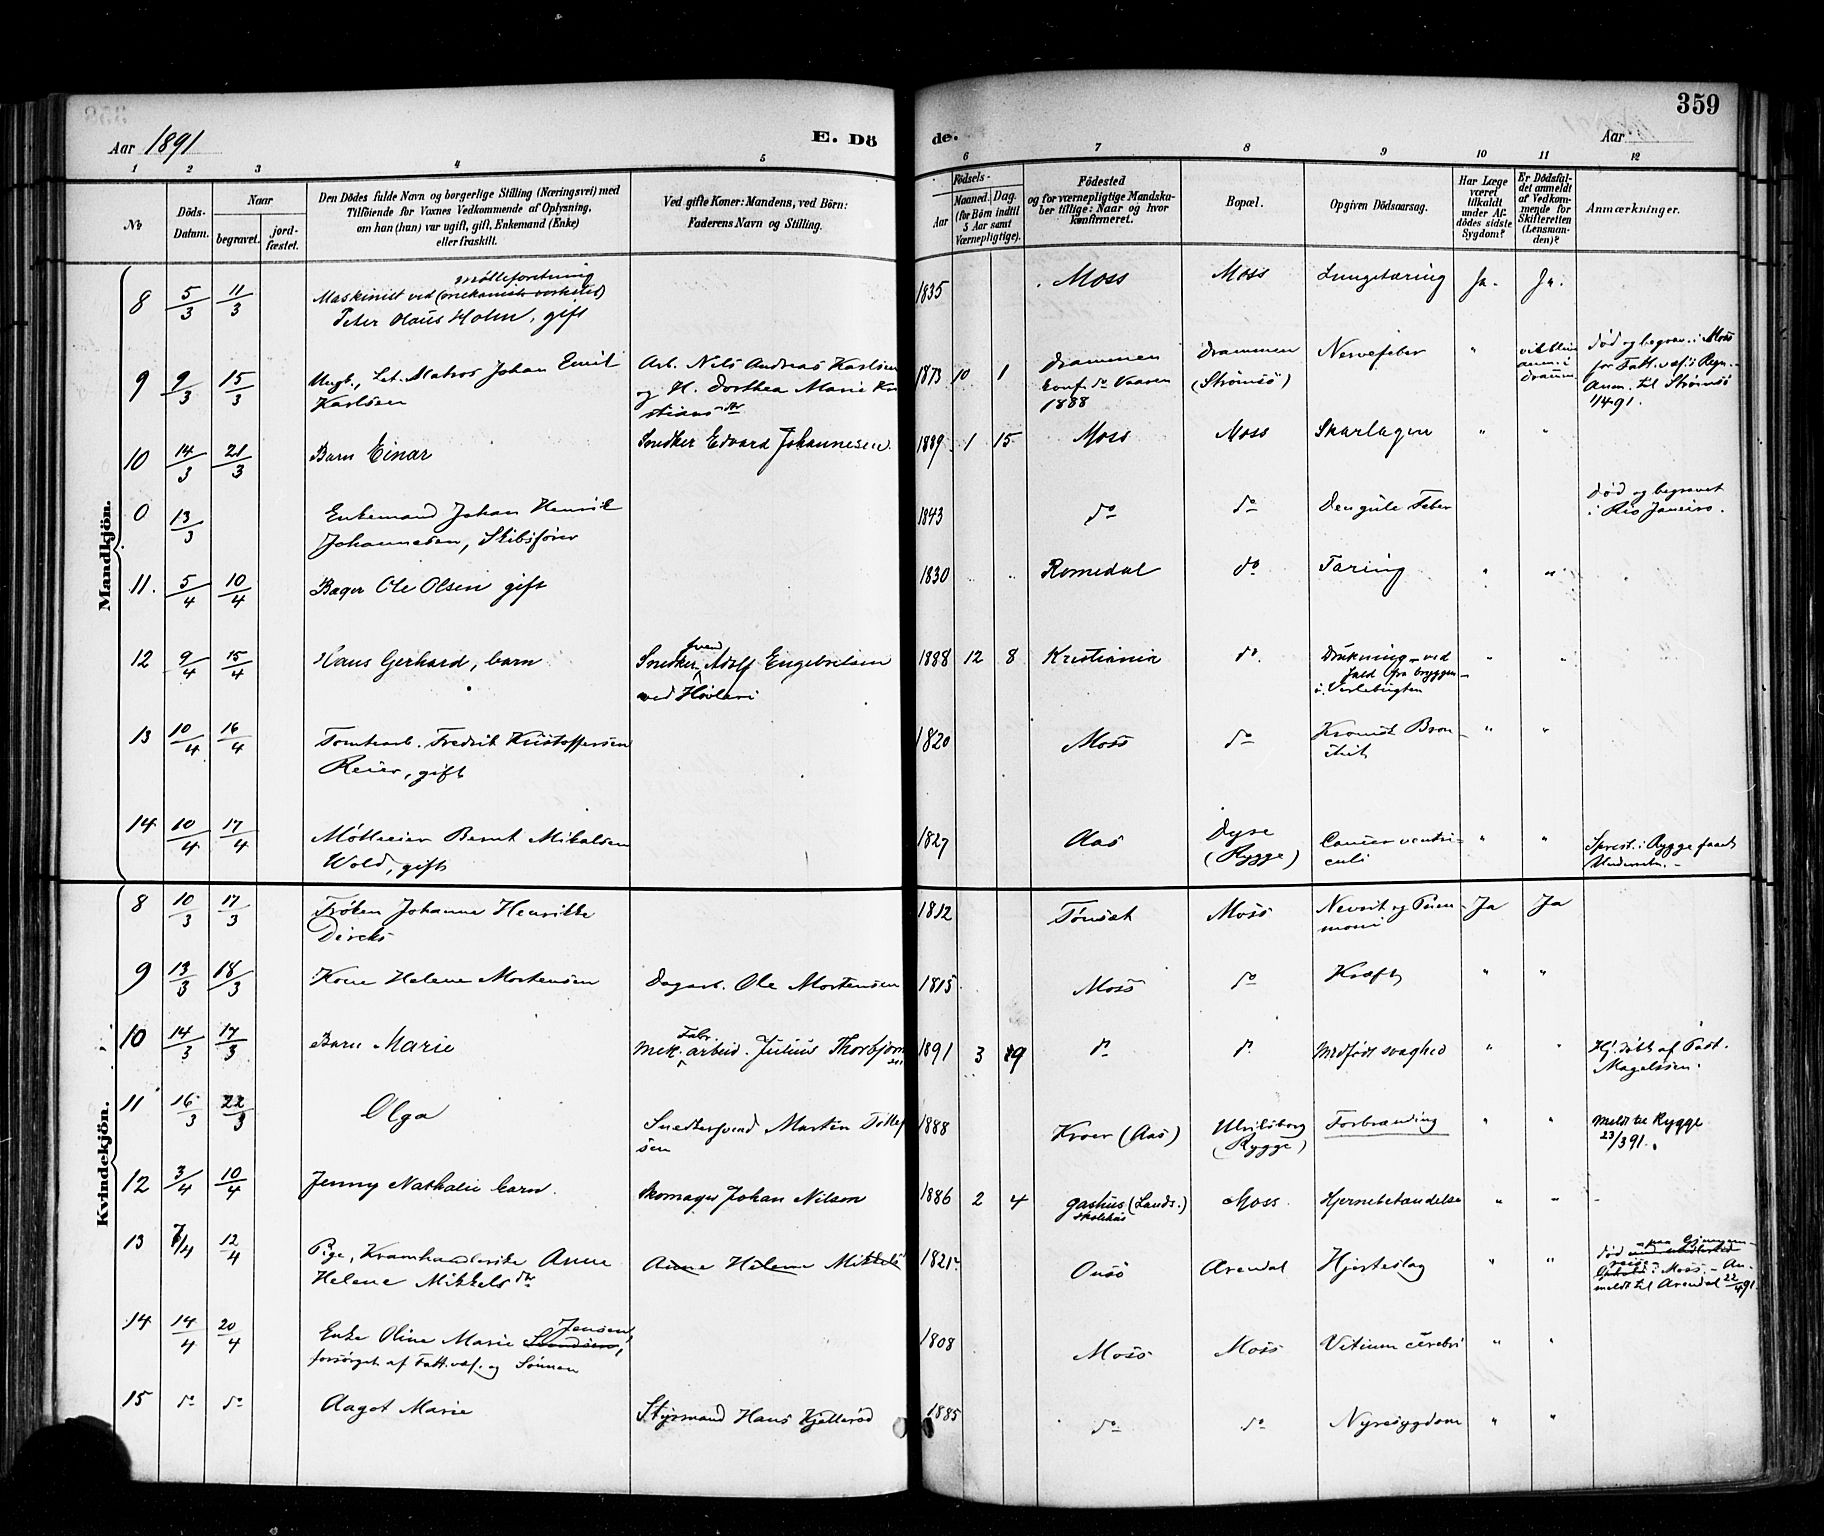 359
Aar 1891 E. Dö de. Aar
1 2 3 4 5 6 7 8 9 10 11 12
No Döds-Datum. Naar begravet. jordfæstet. Den Dödes fulde Navn og borgerlige Stilling (Næringsvei) med Tilföiende for Voxnes Vedkommende af Oplysning, om han (hun) var ugift, gift, Enkemand (Enke) eller fraskilt. Ved gifte Koner: Mandens, ved Börn: Faderens Navn og Stilling. Födsels- Aar Maaned. Dag. (for Börn indtil 5 Aar samt Værnepligtige). Födested og for værnepligtige Mandskaber tillige: Naar og hvor konfirmeret. Bopæl. Opgiven Dödsaarsag. Har Læge været tilkaldt under Afdödes sidste Sygdom? Er Dödsfaldet anmeldt af Vedkommende for Skifteretten (Lensmanden)? Anmærkninger.
Mandkjön.
8 5/3 11/3 Maskinist ved (mekanisk verksted) Mölleforetning 1835 Moss Moss Lungetæring Ja. Ja.
Peter Olaus Holm, gift
9 9/3 15/3 Ungk., Let. Matros Johan Emil Karlsen Arb. Nils Andreas Karlsen og H. Dorthea Marie Kristians dtr 1873 10 1 Drammen konf. do Vaaren 1888 Drammen (Strömsö) Nervefeber " vil bli anm. i Dramm. Död og begrav. i Moss for Fatt.væs.s Regn. Anm. til Strömsö 1/4 91.
10 14/3 21/3 Barn Einar Snedker Edvard Johannesen. 1889 1 15 Moss Moss Skarlagen " "
0 13/3 Enkemand Johan Henrik Johannesen, Skibsförer 1843 do do Den gule Feber Död og begravet i Rio Janeiro.
11. 5/4 10/4 Bager Ole Olsen gift 1830 Romedal do Tæring " "
12 9/4 15/4 Hans Gerhard, barn Snedkersvend Adolf Engebretsen ved Hövleri 1888 12 8 Kristiania do. Drukning ved fald fra bryggen i Verlebugten " "
13 10/4 16/4 Tomtearb. Fredrik Kristoffersen Reier, gift 1820 Moss do Kronisk Bronkit " "
14 10/4 17/4 Mölleeier Bernt Mikalsen Wold, gift 1827 Aas Dyre (Rygge) Cancer ventriculi " " Sprest. i Rygge faaet Underretn.
Kvindekjön.
8 10/3 17/3 Fröken Johanne Henrikke Dircks 1812 Tönset Moss Nevrit og Pneumoni Ja Ja
9 13/3 18/3 Kone Helene Mortensen Dagarb. Ole Mortensen 1815 Moss do Kræft " "
10 14/3 17/3 Barn Marie Mek. Fabr. arbeid. Julius Thorbjörnsen 1891 3 9 do do Medfödt svaghed " " Hj. döbt af Past. Magelssen.
11 16/3 22/3 Olga Snedkersvend Martin Tollefsen 1888 Kroer (Aas) Ulriksborg (Rygge) Forbrænding " " Meldt til Rygge 23/3 91.
12 3/4 10/4 Jenny Nathalie barn. Skomager Johan Nilsen 1886 2 4 Gashus (Lands.) skolehus Moss Hjernebetændelse " "
13 7/4 12/4 Pige, Kramhandlerske Anne Helene Mikkels dtr Anne Helene Mikkels 1821 Onsö Arendal Hjerteslag " " Död paa Gjennemreise i Moss. – Anmeldt til Arendal 22/4 91
14 14/4 20/4 Enke Oline Marie Jensen, forsörget af Fatt.væs. og Sönnen 1808 Moss Moss Vitium cerebri " "
15 do do Aagot Marie Styrmand Hans Kjelleröd 1885 do do Nyresygdom " "